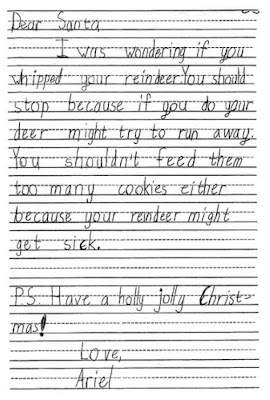 Dear Santa
I was wondering if you
whipped your reindeer You should
stop because if you do your
deer might try to run away.
You shouldn't feed them
too many cookies either
because your reindeer might
get sick.
P.S. Have a holly jolly Christ-
mas!
Love,
Ariel